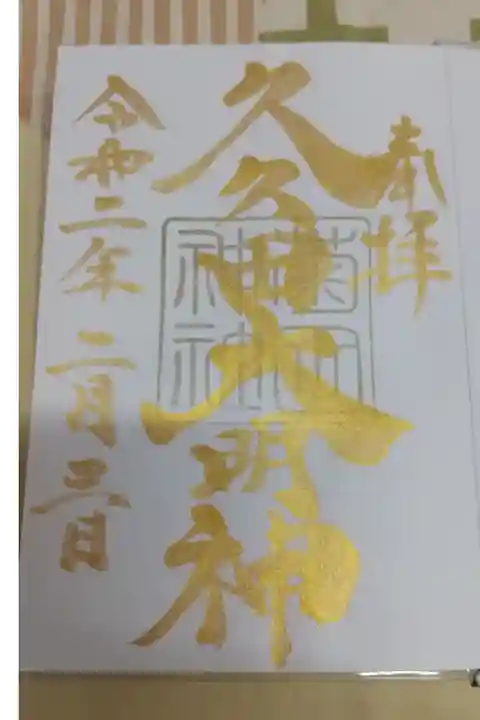 奉拝
久久田大明神
令和二年 二月三日
菊田
神社